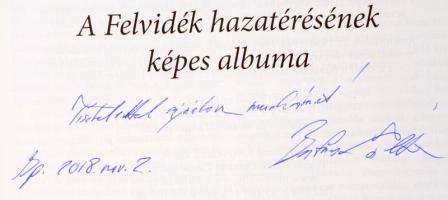 A Felvidék hazatérésének
képes albuma
Tisztelettel ajánlom munkámat!
Bp. 2018. nov. 2.